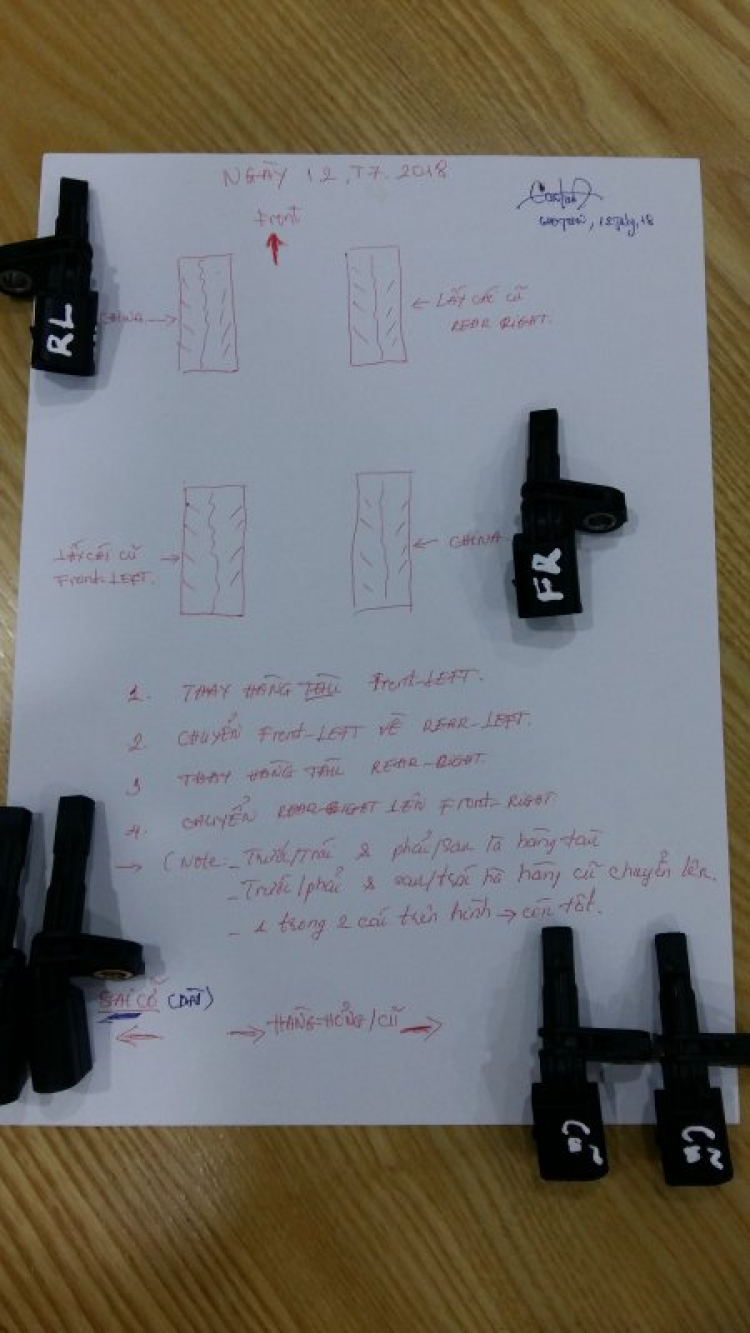 NGÀY 12, T7. 2018
Front
RL
CHINA
LẤY CÁI CŨ
REAR RIGHT.
LẤY CÁI CŨ
Front-LEFT.
CHINA
FR
1. THAY HÀNG TÀU Front-LEFT.
2. CHUYỂN Front-LEFT VỀ REAR-LEFT.
3 THAY HÀNG TÀU REAR-RIGHT.
4. CHUYỂN REAR-RIGHT LÊN Front-RIGHT
(Note: - Trước/Trái & phải/sau là hàng tàu
- Trước/phải & sau/trái là hàng cũ chuyển lên.
- 1 trong 2 cái trên hình → còn tốt.
HÀNG HỎNG/CŨ
Cũ
Cũ